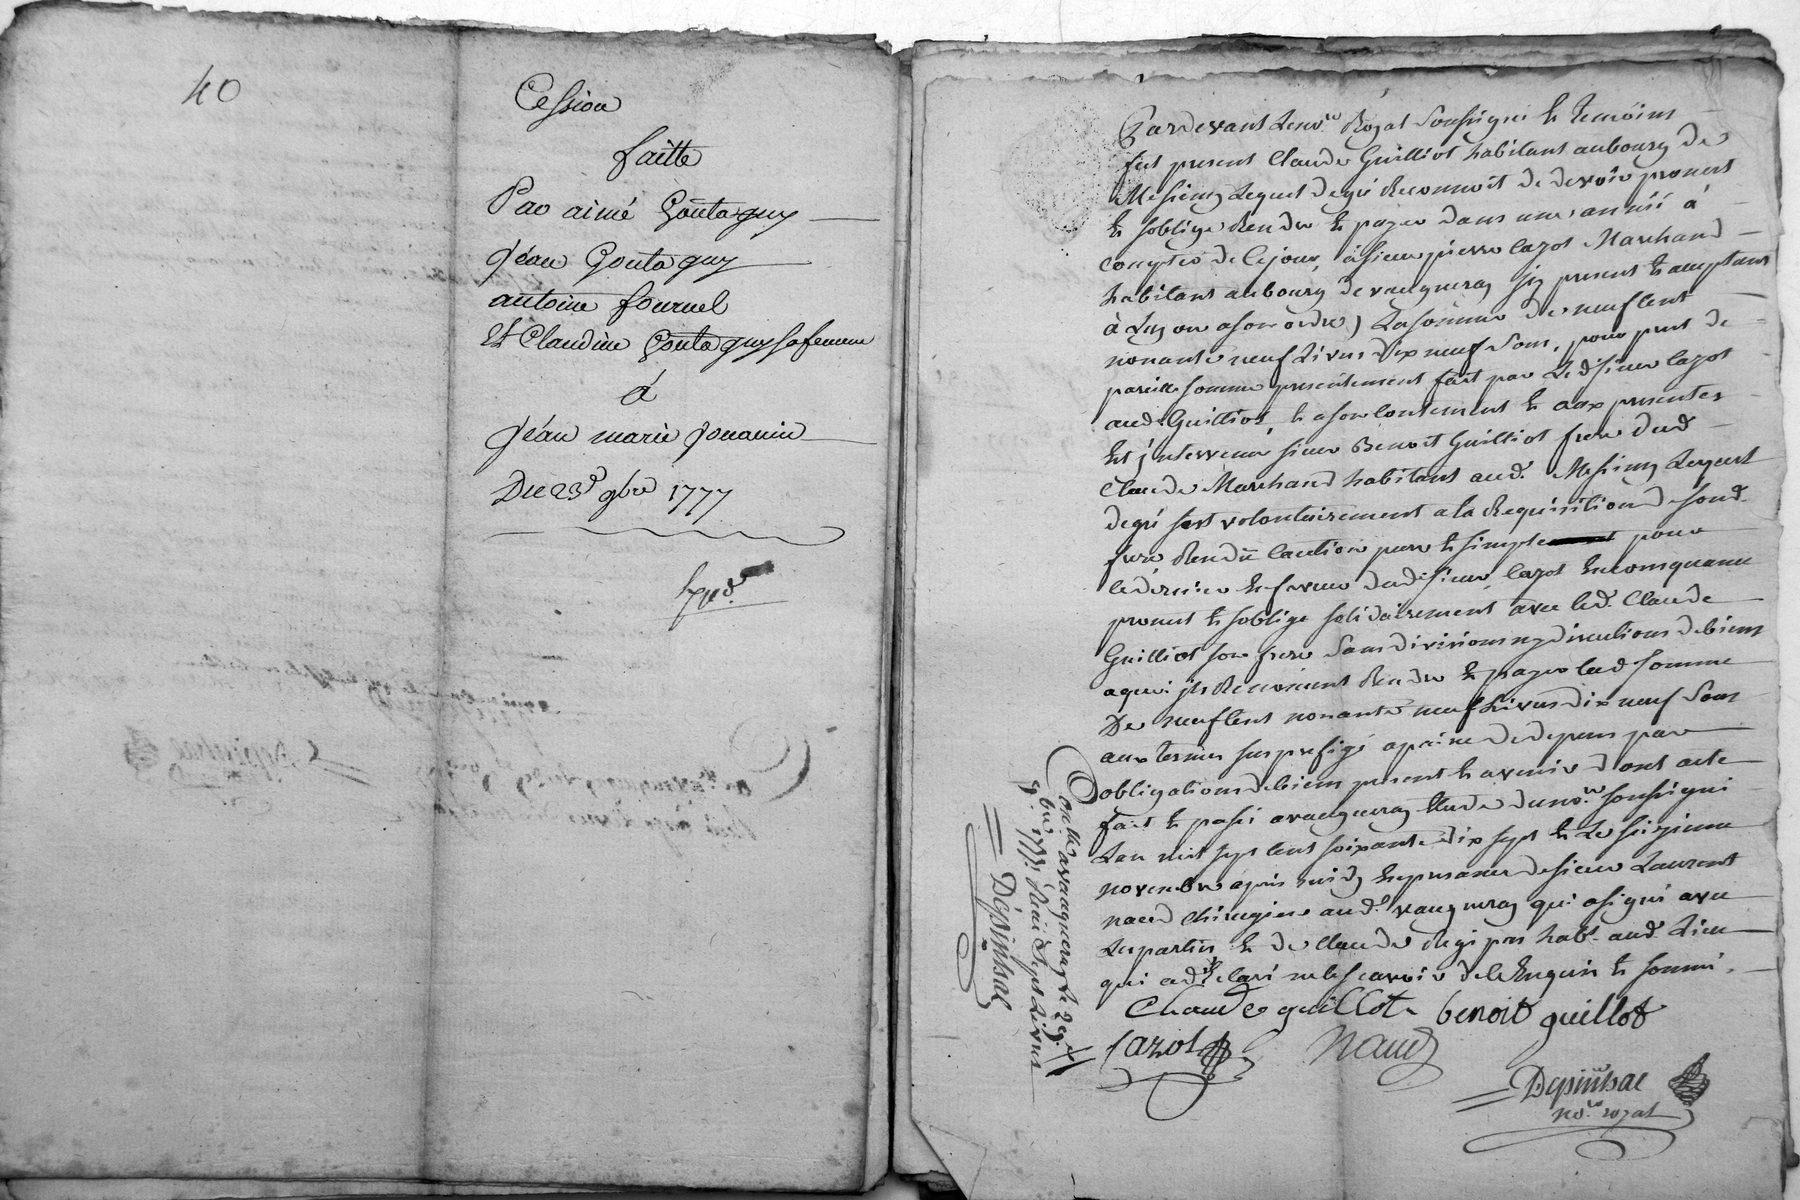 40
Cession
faitte
Par aimé Goutaguy
Jéan Goutaguy
antoine fournel
Et Claudine Goutaguy sa femme
à
Jéan marie Jouanin
Du 23e 9bre 1777
Expéd.
Pardevant Le no.re Royal Soussigné Et Temoins
fut present Claude Guilliot habitant au bourg de
Messimy Lequel de gré Reconnoit de devoir promet
Et soblige Rendre Et payer dans une année à
compter de ce jour, à sieur pierre Cazot Marchand
habitant au bourg de vaugneray jcy present Et acceptant
à Luy ou a son ordre) La somme de neuf Cent
nonante neuf Livres dix neuf Sous, pour prest de
pareille somme presentement fait par Led. sieur Cazot
aud. Guilliot, Et a son Contement Et aux presentes
Est jntervenu sieur Benoit Guilliot frere dud.
Claude Marchand habitant aud. Messimy Lequel
de gré s'est volontairement a la Requisition de sond.
frere Rendû Caution pure Et simple pour
ce dernier En faveur dud. sieur Cazot En consequence
promet Et soblige solidairement avec led. Claude
Guilliot son frere Sans divisions ny discutions de biens
a quoi jls Renoncent Rendre Et payer lad. somme
De neuf Cent nonante neuf Livres dix neuf Sous
aux termes sus prefigé a peine de depens par
obligations de biens present Et avenir dont acte
fait Et passé a vaugneray Etude du no.re soussigné
L'an mil sept cent soixante dix sept Et Le seizieme
novembre apres midy En presence de sieur Laurent
naud chirugien aud. vaugneray qui a signé avec
Les parties Et de Claude Regipas hab.t aud. Lieu
qui a declaré ne le scavoir de ce Enquis Et sommé.
Claude guillot benoit guillot
Cazot Naud
Depinhac
no.re royal
Con.lle a vaugneray Le 29.
9.bre 1777 Recu sept Livres
Depinhac